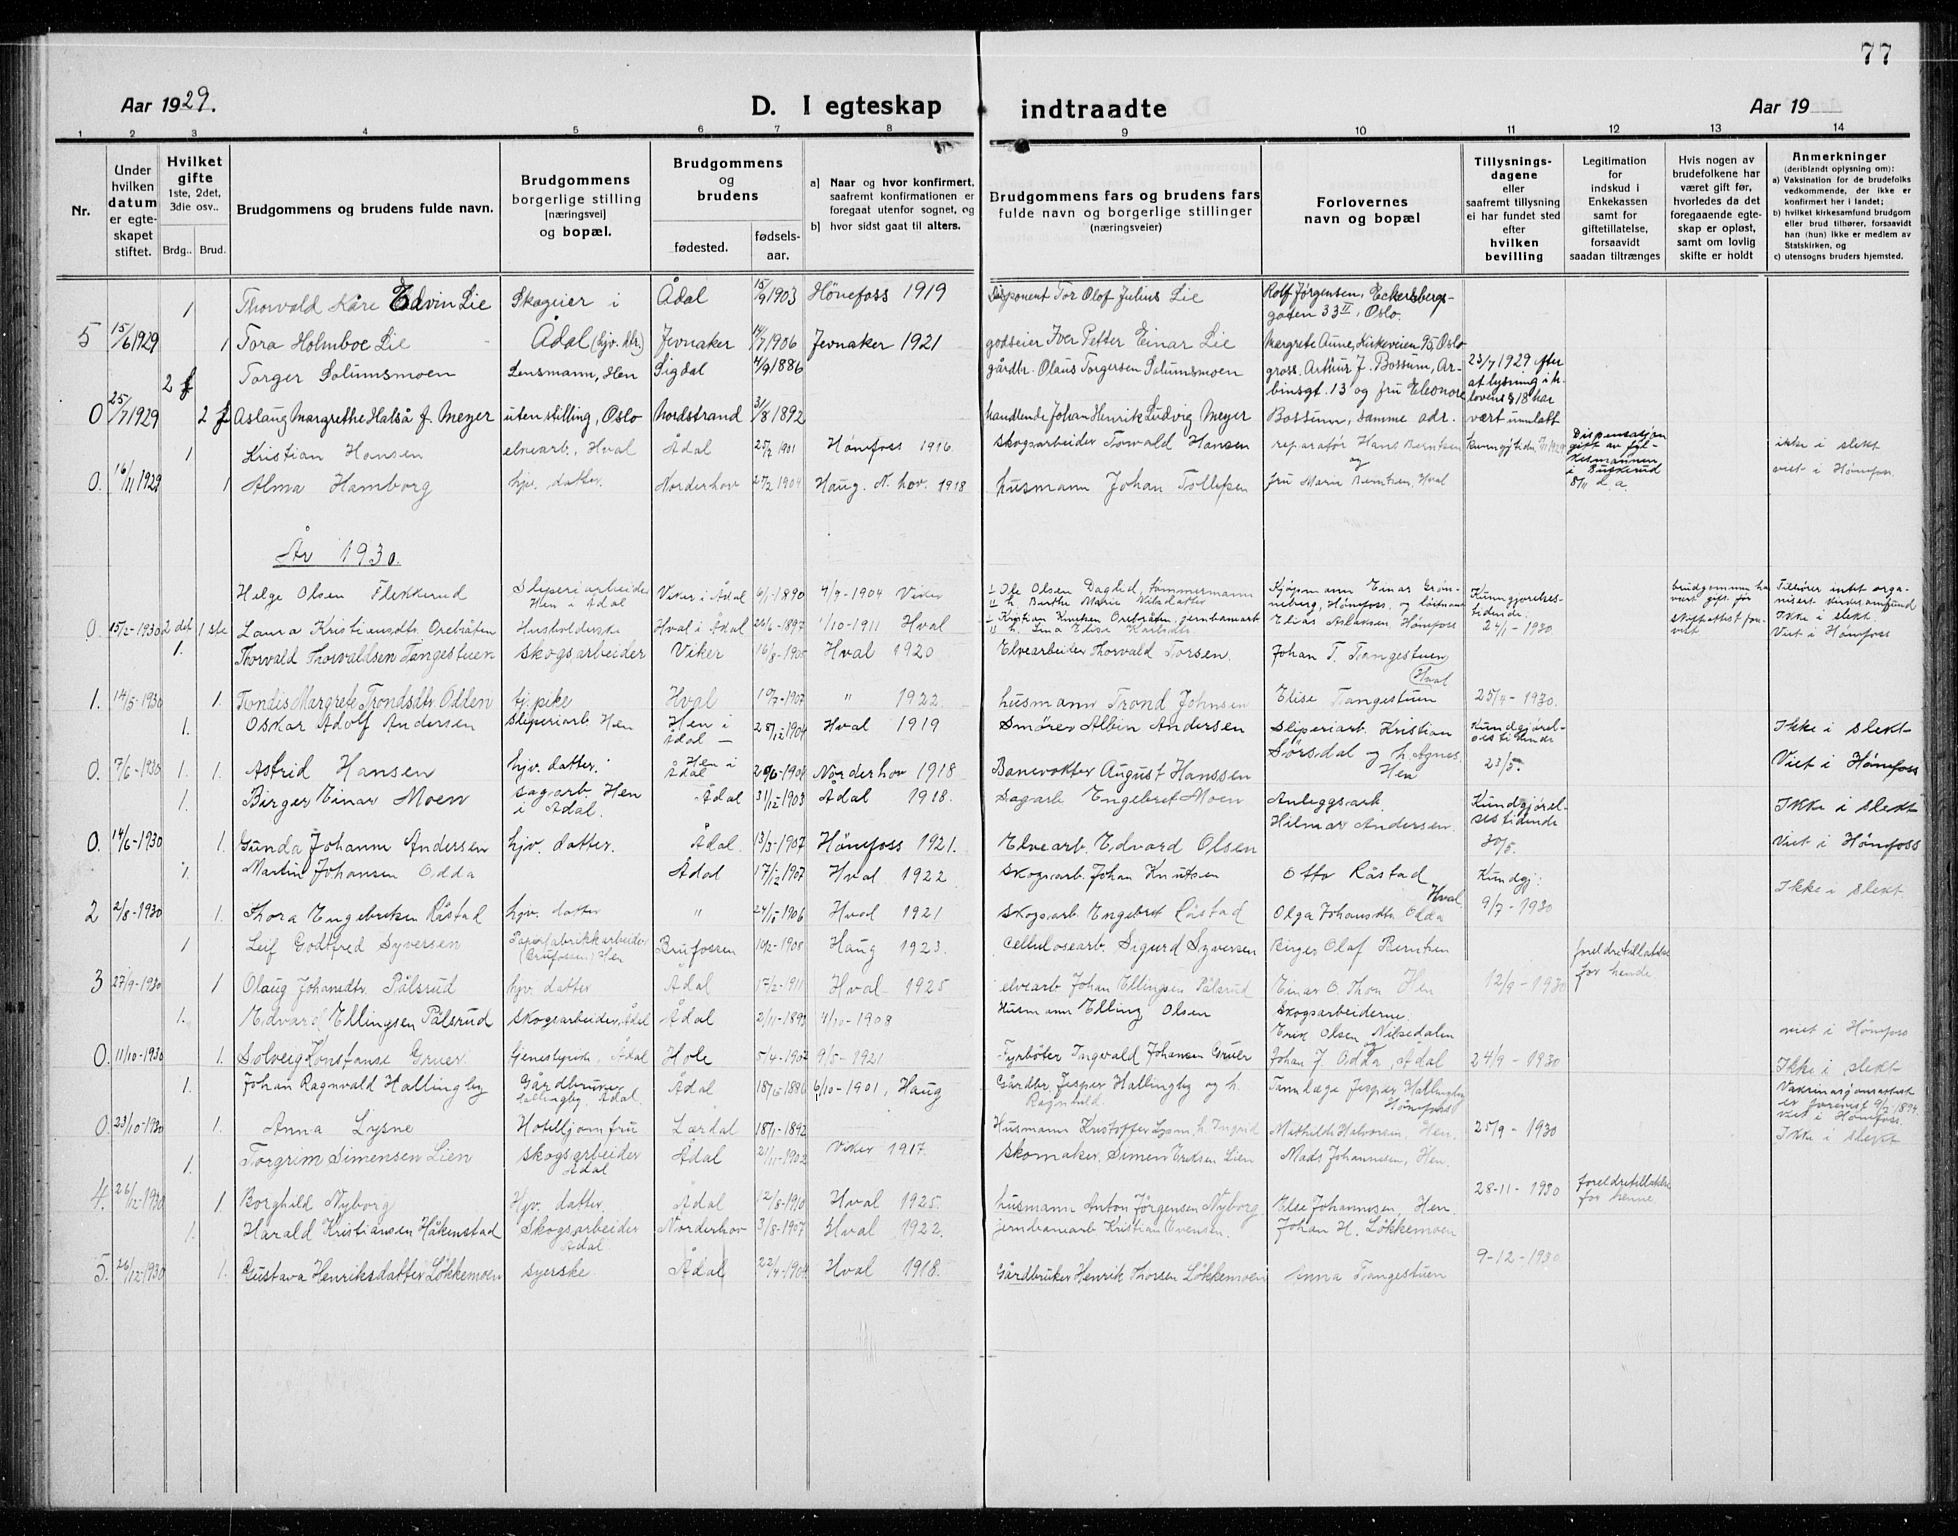 77
Aar 1929.
D. I egteskap indtraadte
Aar 19
1 2 3 4 5 6 7 8 9 10 11 12 13 14
Nr.
Under hvilken datum er egte-skapet stiftet.
Hvilket gifte 1ste, 2det, 3die osv..
Brdg.. Brud.
Brudgommens og brudens fulde navn.
Brudgommens borgerlige stilling [næringsvei] og bopæl.
Brudgommens og brudens
fødested. fødsels-aar.
a) Naar og hvor konfirmert, saafremt konfirmationen er foregaat utenfor sognet, og
b) hvor sidst gaat til alters.
Brudgommens fars og brudens fars fulde navn og borgerlige stillinger (næringsveier)
Forlovernes navn og bopæl
Tillysnings-dagene eller saafremt tillysning ei har fundet sted efter hvilken bevilling
Legitimation for indskud i Enkekassen samt for giftetillatelse, forsaavidt saadan tiltrænges
Hvis nogen av brudefolkene har været gift før, hvorledes da det foregaaende egte-skap er opløst, samt om lovlig skifte er holdt
Anmerkninger (deriblandt oplysning om): a) Vaksination for de brudefolks vedkommende, der ikke er konfirmert her i landet; b) hvilket kirkesamfund brudgom eller brud tilhører, forsaavidt han (hun) ikke er medlem av Statskirken, og c) utensogns bruders hjemsted.
1 Thorvald Kåre Edvin Lie Skogeier i Ådal 15/9 1903 Hönefoss 1919 Disponent Tor Olof Julius Lie Rolf Jørgensen, Eckersbergs-gaten 33 II, Oslo.
5 15/6 1929 1 Tora Holmboe Lie Ådal (hjv. dtr.) Jevnaker 14/7 1906 Jevnaker 1921 godseier Iver Petter Einar Lie Margrete Aune, Kirkeveien 75, Oslo
2 Torger Solumsmoen Lensmann, Hen Sigdal 4/9 1886 gårdbr. Olaus Torgersen Solumsmoen gross. Arthur J. Bossum, Ar-binsgt. 13 og fru Eleonore 23/7 1929 efter at lysning i h. lovens § 18 har
0 25/7 1929 2 Aslaug Margrethe Halså f. Meyer uten stilling, Oslo Nordstrand 31/8 1892 handlende Johan Henrik Ludvig Meyer Bossum, samme adr. vært unnlatt
1 Kristian Hansen elvearb., Hval Ådal 25/2 1901 Hønefoss 1916 skogsarbeider Torvald Hansen reparatør Hans Berntsen og Dispensasjon gitt av fyl-kesmannen i Buskerud 8/11 d. a. ikke i slekt
0. 16/11 1929 1 Alma Hamborg hjv. datter. Norderhov 27/2 1904 Haug. N. hov. 1918 husmann Johan Tollefsen fru Marie Berntsen, Hval viet i Hønefoss
År 1930.
Helge Olsen Flekkerud Sliperiarbeider Hen i Ådal Viker i Ådal 6/1-1890 4/9-1904 Viker Ole Olsen Dagslid, tømmermann h. Berthe Marie Nilsdatter Kjøpmann Einar Grøn-neberg, Hønefoss, og løitnant Kunngjørelses-tidende. brudgommen har vært gift før Tilhører intet orga-nisert kirkesamfund
0. 15/2-1930 2 det 1 ste Laura Kristiansdtr. Orebråten Husholderske Hval i Ådal 26/6-1897 1/10-1911 Hval Kristian Knutsen Orebråten, jernbanearb. h. Lina Elise Karlsdtr. Elias Aslaksen, Hønefoss 24/1-1930 skifteattest fore-vist Ikke i slekt. Viet i Hønefoss
1. Thorvald Thorvaldsen Tangestuen skogsarbeider Viker 16/8-1905 Hval 1920 Elvearbeider Thorvald Torsen. Johan T. Tangestuen Hval
1. 14/5-1930 1. Tordis Margrete Trondsdtr. Odden tj. pike Hval 10/7-1907 " 1922 husmann Trond Johnsen Elise Tangestuen 25/4-1930.
1. Oskar Adolf Andersen sliperiarb. Hen Hen i Ådal 28/12-1904 Hval 1919 Smører Albin Andersen Sliperiarb. Kristian Sörsdal og h. Agnes Hen Kundgjørel-sestidende 23/5. Ikke i slekt
0. 7/6-1930 1. 1. Astrid Hansen hjv. datter. Hen i Ådal 1904 Norderhov 1918 Banevokter August Hanssen Viet i Hønefoss
1. Birger Einar Moen sagarb. Hen i Ådal. Ådal 31/12-1903 Ådal 1918. Sagarb. Engebret Moen Anleggsarb. Hilmar Andersen. Kundgjørel-sestidende 30/5. Ikke i slekt
0. 14/6-1930 1. Gunda Johanne Andersen hjv. datter. Ådal. 13/3-1907 Hønefoss 1921. Elvearb. Edvard Olsen Viet i Hønefoss
1. Martin Johansen Odda Ådal 17/12-1907 Hval 1922 skogsarb. Johan Knutsen Otto Råstad Hval Kundgj: Ikke i slekt
2 2/8-1930 1. Thora Engebretsen Råstad hjv. datter " 24/5-1906 Hval 1921 skogsarb. Engebret Råstad Olga Johansdtr. Odda 9/7-1930
1 Leif Godtfred Syversen Papirfabrikkarbeider (Brufossen) Hen Brufossen 1908 Haug 1923. Cellulosearb. Sigurd Syversen Birger Olaf Berntsen foreldretillatelse for hende
3 27/9-1930 1 Olaug Johansdtr. Pålsrud hjv. datter Ådal 17/2-1911 Hval 1925 elvearb. Johan Ellingsen Pålsrud Einar O. Thon Hen 12/9-1930
1. Edvard Ellingsen Pålsrud skogsarbeider, Ådal Ådal 2/11-1893 4/10-1908 Husmann Elling Olsen Skogsarbeiderne. Erik Olsen Nilsedalen og viet i Hønefoss
0. 11/10-1930 1. Solveig Konstanse Gruer. tjenestepike, Ådal Hole 5/4-1907 9/5-1921 Fyrbøter Ingvald Johansen Gruer Johan J. Odda, Ådal 24/9-1930 Ikke i slekt
1. Johan Ragnvald Hallingby Gårdbruker Hallingby, Ådal. Ådal 18/5-1886 6/10-1901, Haug Gårdbr. Jesper Hallingby og h. Ragnhild Tannlæge Jesper Hallingby Hønefoss Vaksinasjonsattest er forevist 9/7-1894. viet i Hønefoss.
0. 23/10-1930 1. Anna Lysne Hotelljomfru Lærdal 18/1-1892 Husmann Kristoffer Lysne h. Ingrid Mathilde Halvorsen, Hen. 25/9-1930 Ikke i slekt
1. Torgrim Simensen Lien skogsarbeider Ådal Ådal 21/11-1902 Viker 1917. skomaker. Simen Eriksen Lien Mads Johannesen, Hen.
4. 26/12-1930 1. Borghild Nyborg Hjv. datter. Ådal 12/8-1910 Hval 1925. husmann Anton Jörgensen Nyborg Else Johannesen, Hen. 28-11-1930 foreldretillatelse for henne
1. Harald Kristiansen Håkenstad Skogsarbeider Ådal Norderhov 3/8-1907 Hval 1922. jernbanearb. Kristian Evensen. Johan H. Løkkemoen
5. 26/12-1930 1. Gustava Henriksdatter Løkkemoen syerske Ådal 22/4-1904 Hval 1918. Gårdbruker Henrik Thorsen Løkkemoen Anna Tangestuen 9-12-1930